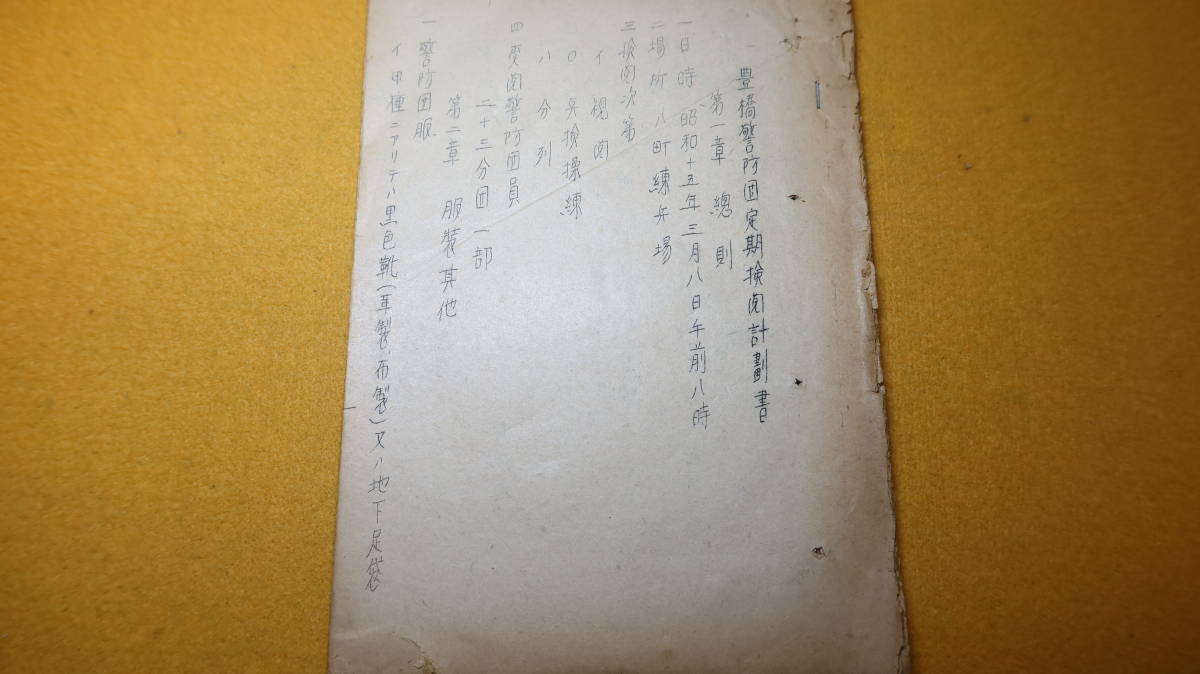 豊橋警防団定期検閲計劃書
第一章 總則
一日時 昭和十五年三月八日午前八時
二場所 八町練兵場
三検閲次第
イ 視閲
ロ 点検操練
ハ 分列
四受閲警防団員
二十三分団一部
第二章 服装其他
一警防団服
イ甲種ニアリテハ黒色靴(革製、布製)又ハ地下足袋